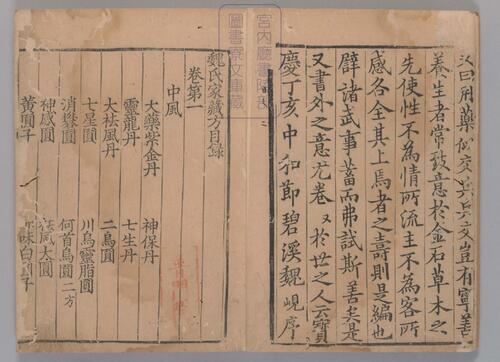 曰用藥似交兵兵交豈有寧善
養生者常致意於金石草木之
先使性不為情所流主不為客所
感各全其上焉者之壽則是編也
譬諸武事蓄而弗試斯善矣是
又書外之意尤卷々於世之人云寶
慶丁亥中和節碧溪魏峴序
宮内廳書陵部
圖書寮文庫蔵
魏氏家藏方目録
卷第一
中風
大藥紫金丹 神保丹
靈龍丹 七生丹
大祛風丹 二烏丹
七星圓 川烏靈脂圓
消圓 何首烏圓二方
神感圓 祛風太圓
黄圓子 味白圓子